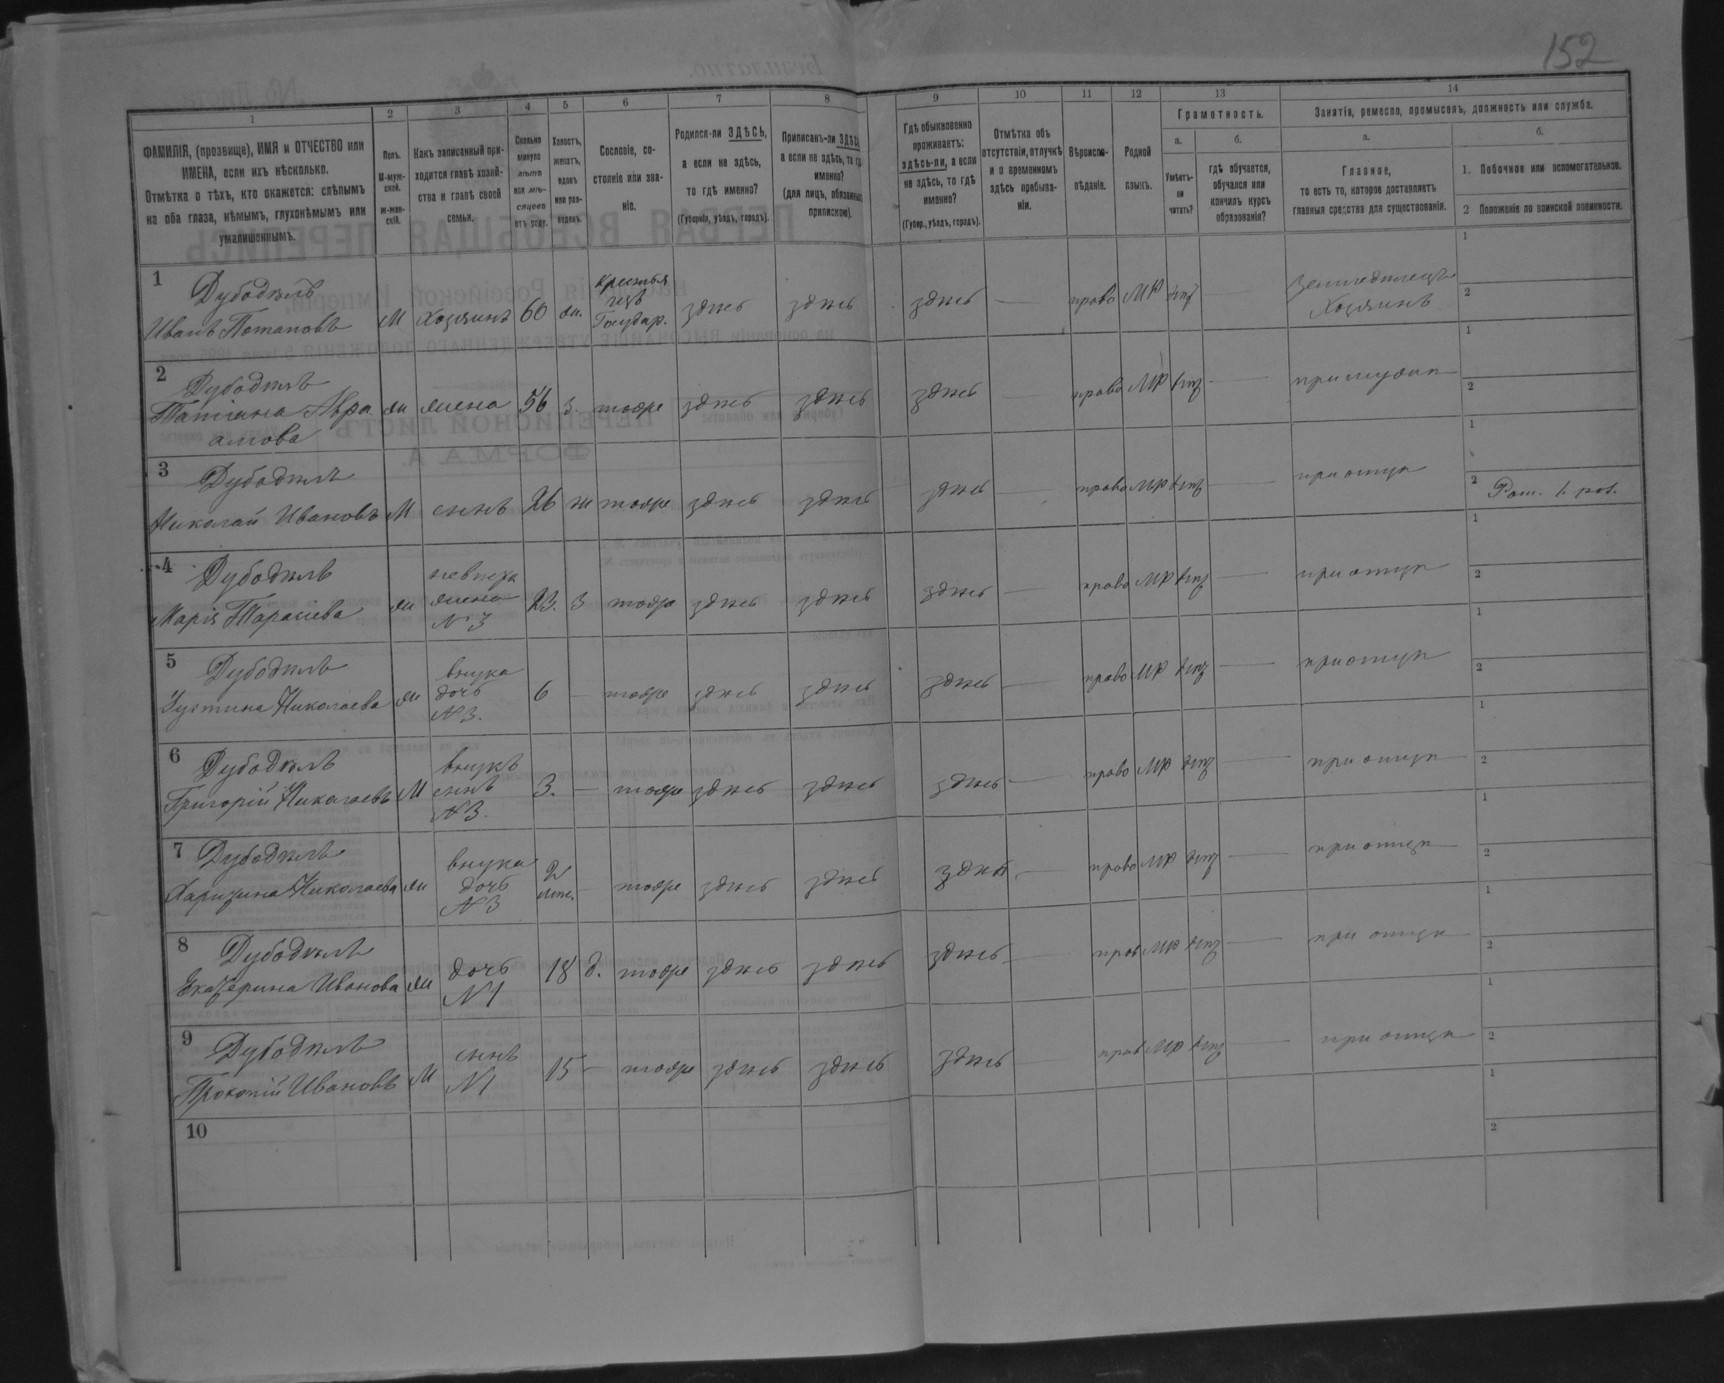 152
1 2 3 4 5 6 7 8 9 10 11 12 13 14
ФАМИЛІЯ, (прозвище), ИМЯ и ОТЧЕСТВО или ИМЕНА, если ихъ нѣсколько.
Отмѣтка о тѣхъ, кто окажется: слѣпымъ на оба глаза, нѣмымъ, глухонѣмымъ или умалишеннымъ.
Полъ.
М-мужской.
ж-женскій.
Какъ записанный приходится главѣ хозяйства и главѣ своей семьи.
Сколько минуло лѣтъ или мѣсяцевъ отъ роду.
Холостъ, женатъ, вдовъ или разведенъ.
Сословіе, состояніе или званіе.
Родился-ли ЗДѢСЬ, а если не здѣсь, то гдѣ именно?
(Губернія, уѣздъ, городъ).
Приписанъ-ли ЗДѢСЬ, а если не здѣсь, то гдѣ именно?
(для лицъ, обязанныхъ припискою).
Гдѣ обыкновенно проживаетъ: здѣсь-ли, а если не здѣсь, то гдѣ именно?
(Губер., уѣздъ, городъ).
Отмѣтка объ отсутствіи, отлучкѣ и о временномъ здѣсь пребываніи.
Вѣроисповѣданіе.
Родной языкъ.
Грамотность.
а.
Умѣетъ-ли читать?
б.
гдѣ обучается, обучался или кончилъ курсъ образованія?
Занятіе, ремесло, промыселъ, должность или служба.
а.
Главное,
то есть то, которое доставляетъ главныя средства для существованія.
б.
1. Побочное или вспомогательное.
2 Положеніе по воинской повинности.
1 Дубодѣлъ Иванъ Потаповъ М Хозяинъ 60 ж. Крестьянецъ Государ. здѣсь здѣсь здѣсь — право МР нѣтъ — Земледѣлецъ Хозяинъ 1 2
2 Дубодѣлъ Татіяна Авраамова ж жена 56 з. тоже здѣсь здѣсь здѣсь — право МР нѣтъ — при мужѣ 1 2
3 Дубодѣлъ Николай Ивановъ М сынъ 26 ж тоже здѣсь здѣсь здѣсь — право МР нѣтъ — при отцѣ 1 2
4 Дубодѣлъ Марія Тарасіева ж невѣстка жена №3 23. з тоже здѣсь здѣсь здѣсь — право МР нѣтъ — при отцѣ 1 2
5 Дубодѣлъ Устина Николаева ж внука дочь №3. 6 — тоже здѣсь здѣсь здѣсь — право МР нѣтъ — при отцѣ 1 2
6 Дубодѣлъ Григорій Николаевъ М внукъ сынъ №3. 3. — тоже здѣсь здѣсь здѣсь — право МР нѣтъ — при отцѣ 1 2
7 Дубодѣлъ Харитина Николаева ж внука дочь №3 — тоже здѣсь здѣсь здѣсь — право МР нѣтъ — при отцѣ 1 2
8 Дубодѣлъ Екатерина Иванова ж дочь №1 18 д. тоже здѣсь здѣсь здѣсь — прав МР нѣтъ — при отцѣ 1 2
9 Дубодѣлъ Прокопій Ивановъ М сынъ №1 15 — тоже здѣсь здѣсь здѣсь прав МР нѣтъ — при отцѣ 1 2
10 1 2